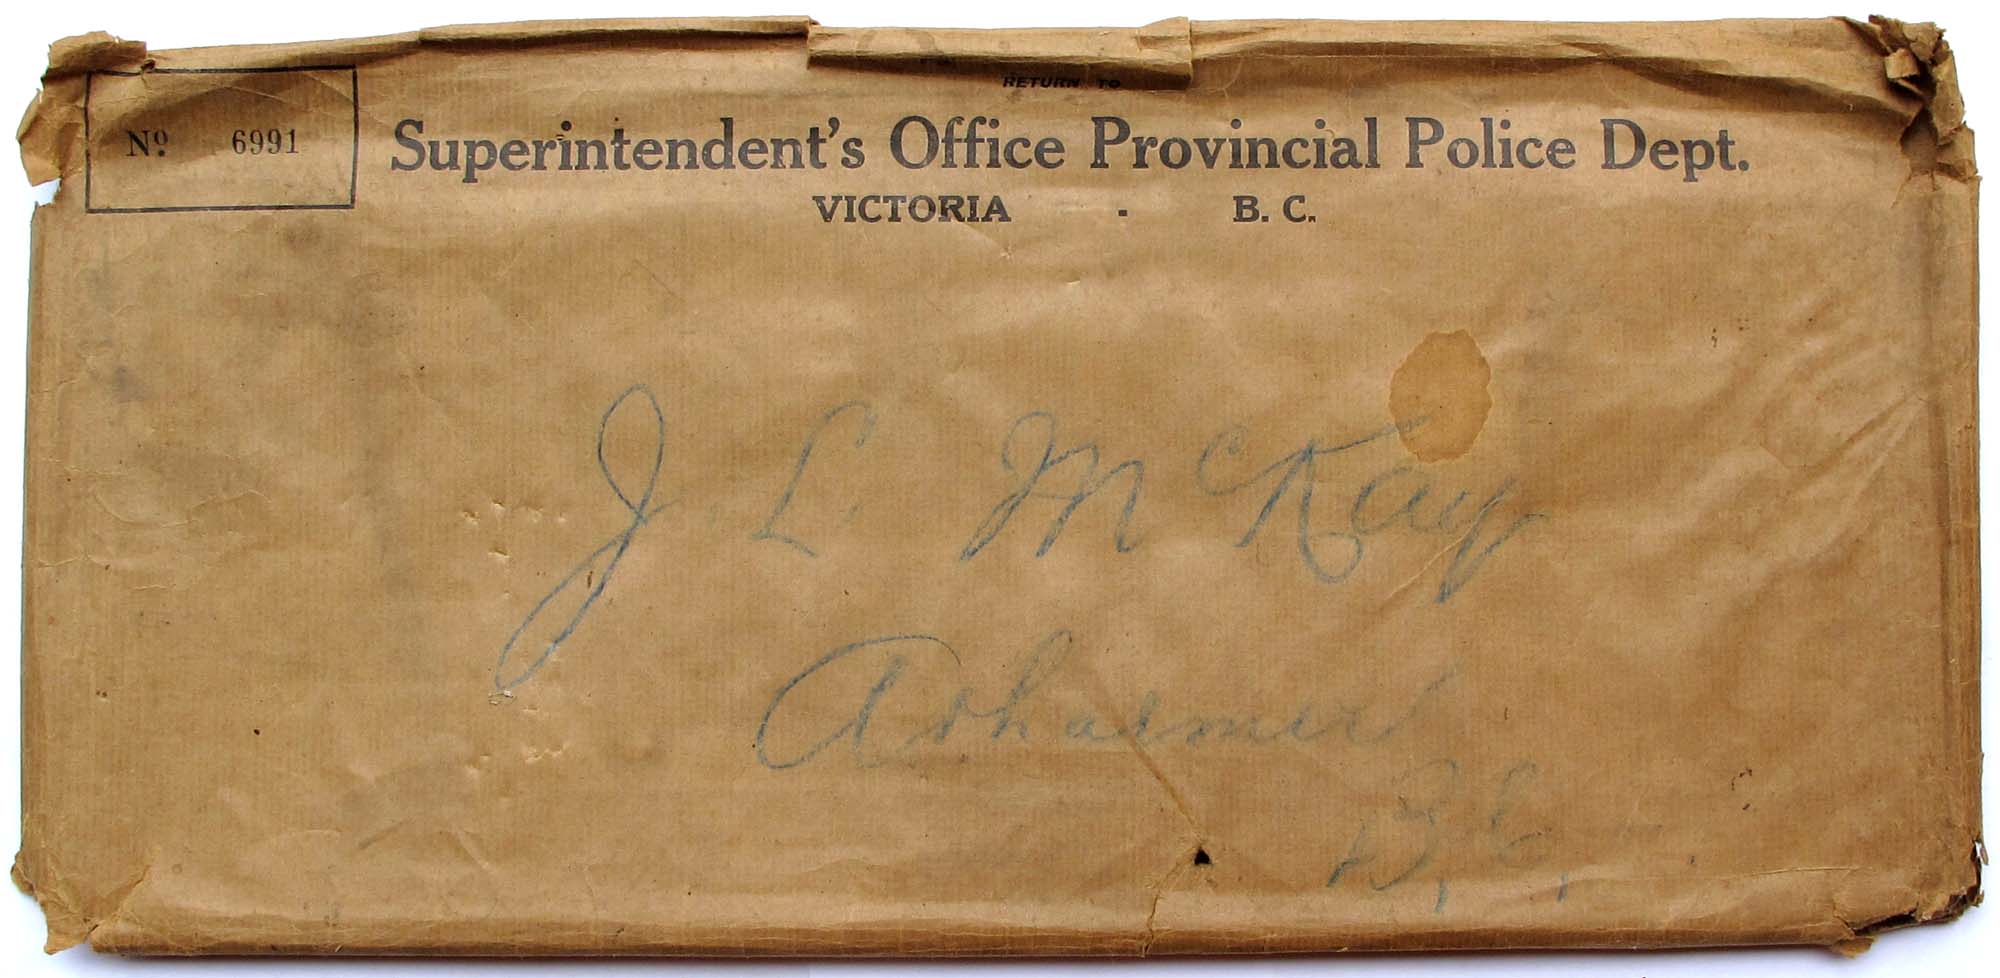 RETURN TO
Nº 6991
Superintendent's Office Provincial Police Dept.
VICTORIA - B. C.
J L McKay
B. C.